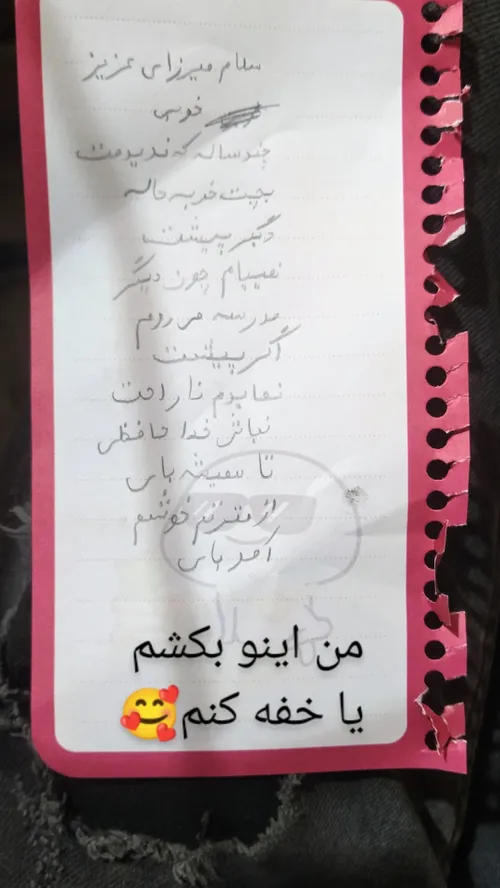 سلام میرزای عزیز
خوبی
چند ساله که ندیدمت
بچت خوبه حاله
دیگر پیشت
نمییام چون دیگر
مدرسه می روم
اگر پیشت
نبودم ناراحت
نباش خدا حافظی
تا همیشه بای
از متنتم خوشم
آمد بای
من اینو بکشم
یا خفه کنم🥰